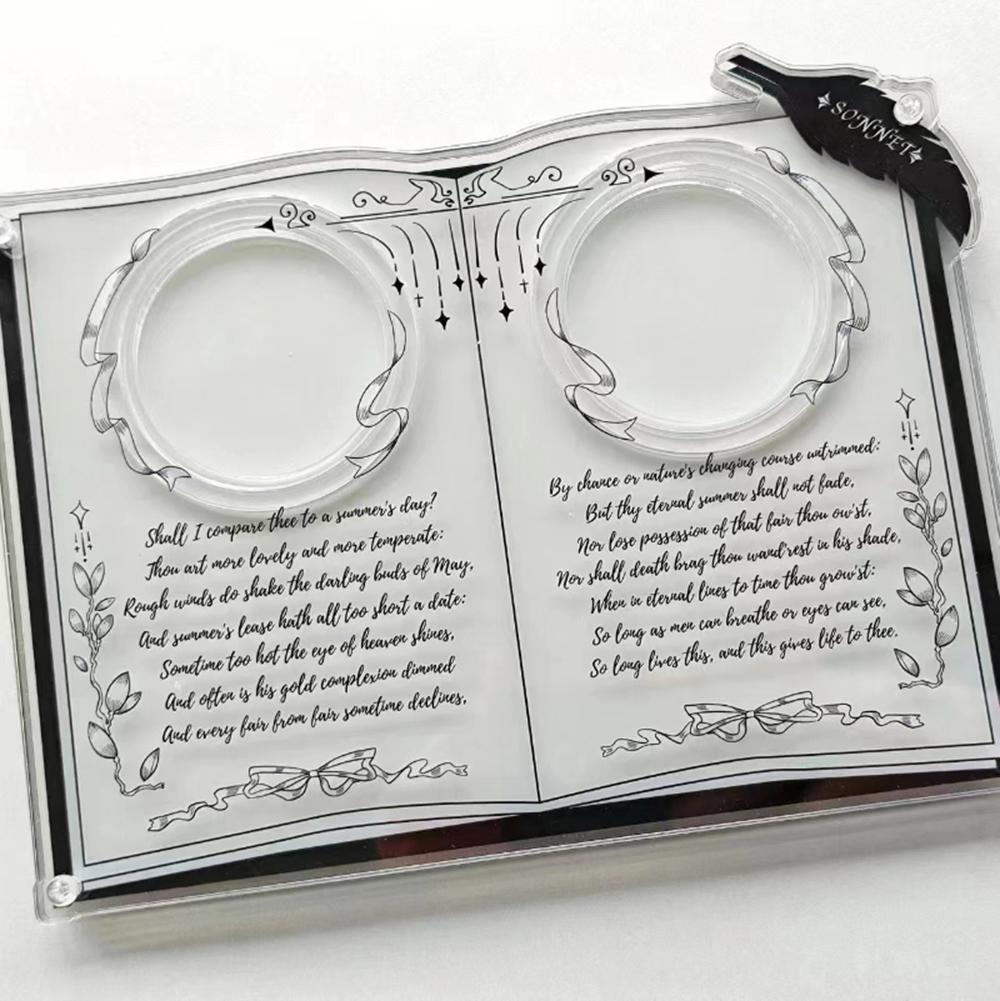 SONNET
Shall I compare thee to a summer's day?
Thou art more lovely and more temperate:
Rough winds do shake the darling buds of May,
And summer's lease hath all too short a date:
Sometime too hot the eye of heaven shines,
And often is his gold complexion dimmed
And every fair from fair sometime declines,
By chance or nature's changing course untrimmed:
But thy eternal summer shall not fade,
Nor lose possession of that fair thou ow'st,
Nor shall death brag thou wand'rest in his shade,
When in eternal lines to time thou grow'st:
So long as men can breathe or eyes can see,
So long lives this, and this gives life to thee.